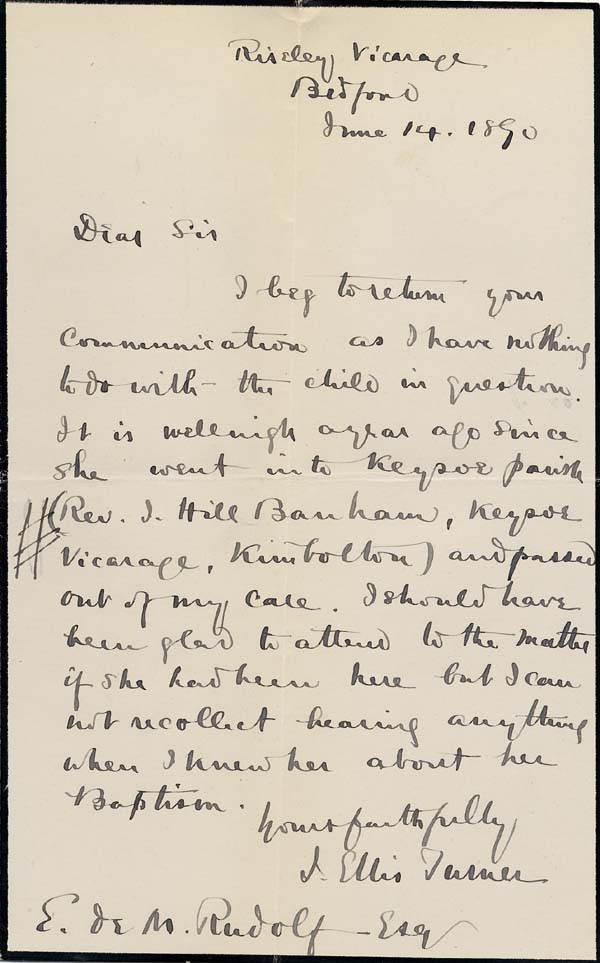 Riseley Vicarage
Bedford
June 14. 1890
Dear Sir
I beg to return your
Communication as I have nothing
to do with the child in question.
It is wellnigh a year ago since
she went into Keysoe parish
(Rev. J. Hill Banham, Keysoe
Vicarage, Kimbolton) and passed
out of my care. I should have
been glad to attend to the matter
if she had been here but I can
not recollect hearing anything
when I knew her about her
Baptism.
Yours faithfully
J. Ellis Turner
E. de M. Rudolf Esq